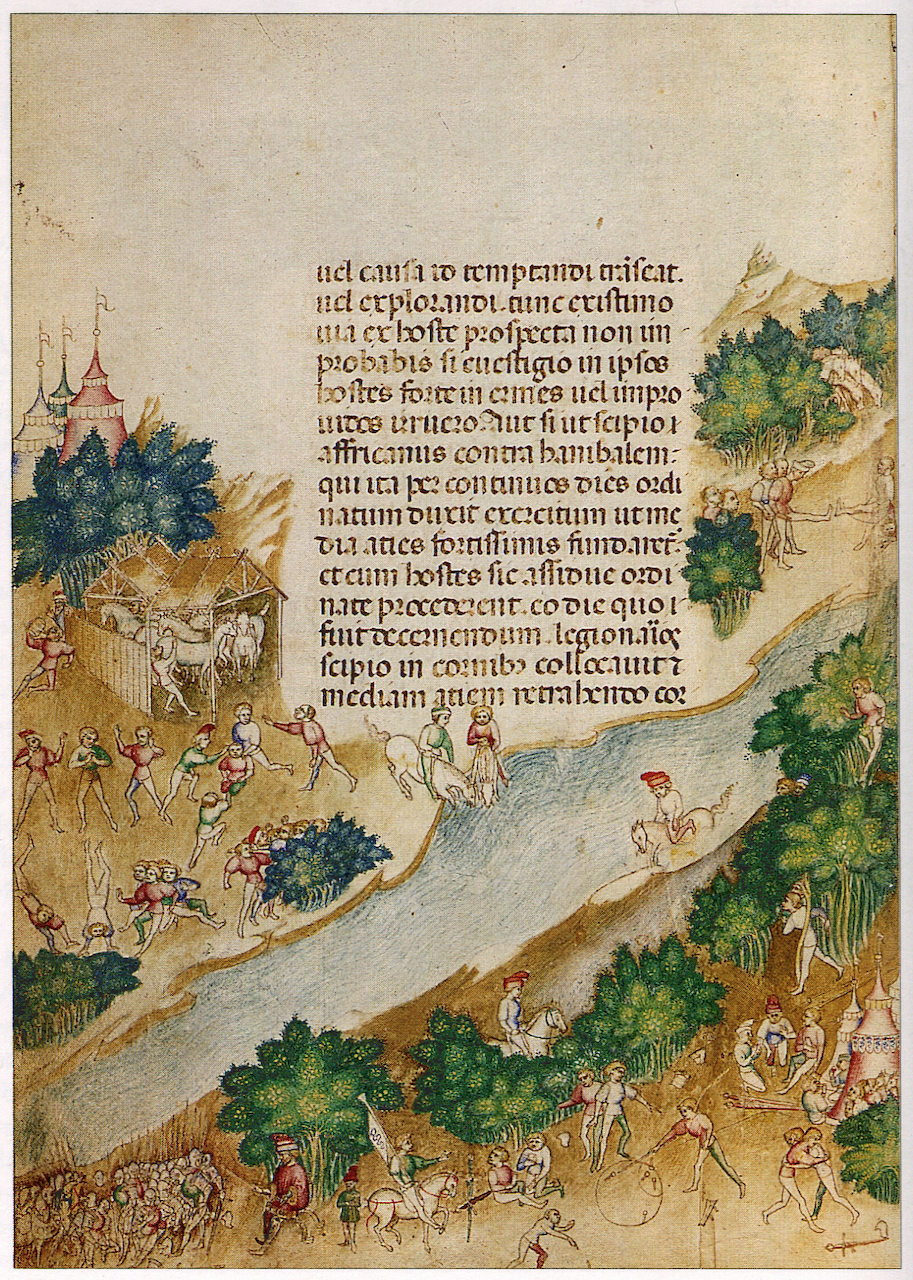 uel causa id temptandi trãseat.
uel explorandi. tunc existimo
uia ex hoste prospecta non im
probabis si euestigio in ipsos
hostes forte in ermes uel impro
uidos irruero. Aut si ut scipio
affricanus contra hanibalem:
qui ita per continuos dies ordi
natum duxit exercitum ut me
dia aties fortissimis fundaret̃.
et cum hostes sic assidue ordi
nate procederent. eo die quo
fuit decernendum. legionarios
scipio in cornibꝫ collocauit ⁊
mediam atiem retrahendo cor